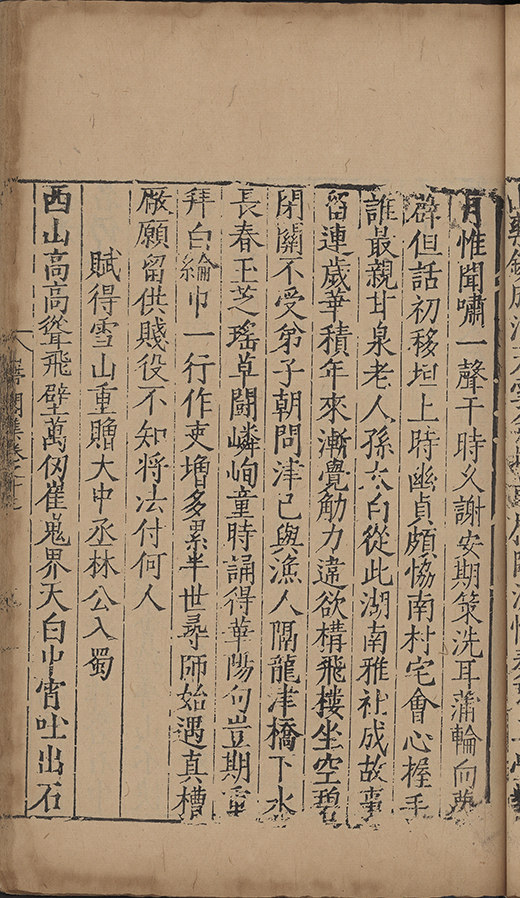 月惟聞嘯一聲干時义謝安期策洗耳蒲輪向
辟但話初移垣上時幽貞頗恊南村宅會心握手
誰最親甘泉老人孫太白從此湖南雅社成故事
留連歲華積年來漸覺觔力違欲構飛樓坐空碧
閉關不受弟子朝問津已與漁人隔龍津橋下水
長春玉芝瑤草鬬嶙峋童時誦得華陽句豈期重
拜白綸巾一行作吏增多累半世尋師始遇真槽
厰願留供賤役不知將法付何人
賦得雪山重贈大中丞林公入蜀
西山高高聳飛壁萬仭崔嵬界天白中宵吐出石